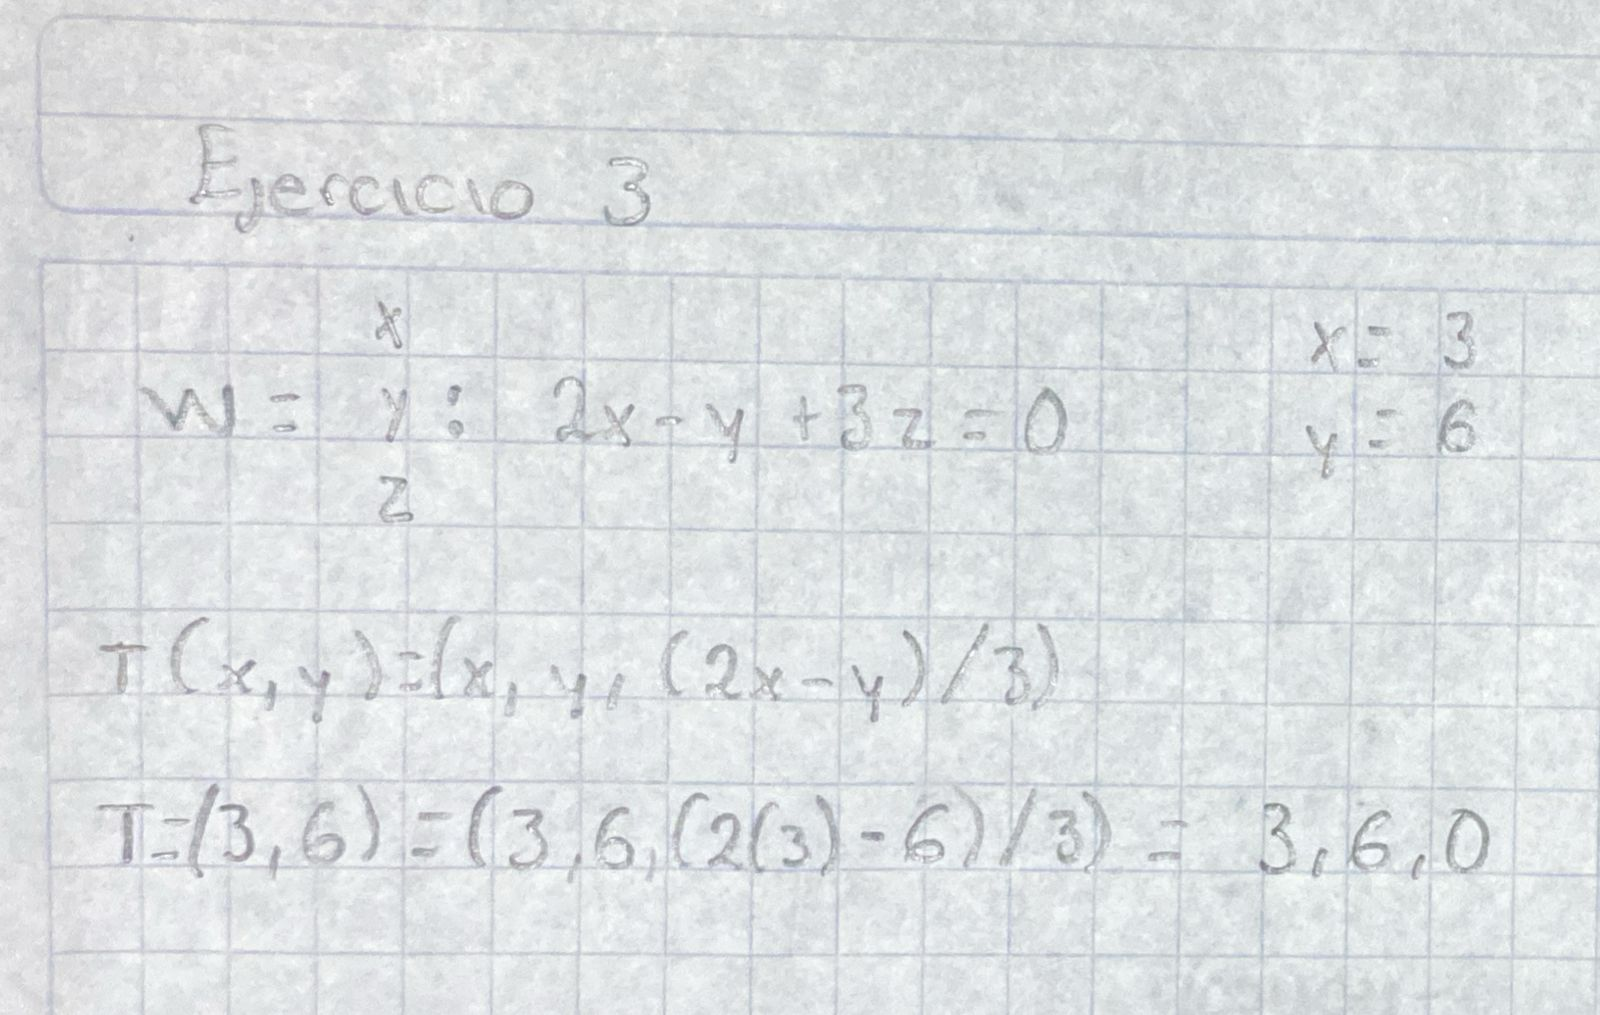 Ejercicio 3
x
x = 3
W = y : 2x - y + 3z = 0
y = 6
z
T(x, y) = (x, y, (2x - y) / 3)
T = (3, 6) = (3, 6, (2(3) - 6) / 3) = 3, 6, 0